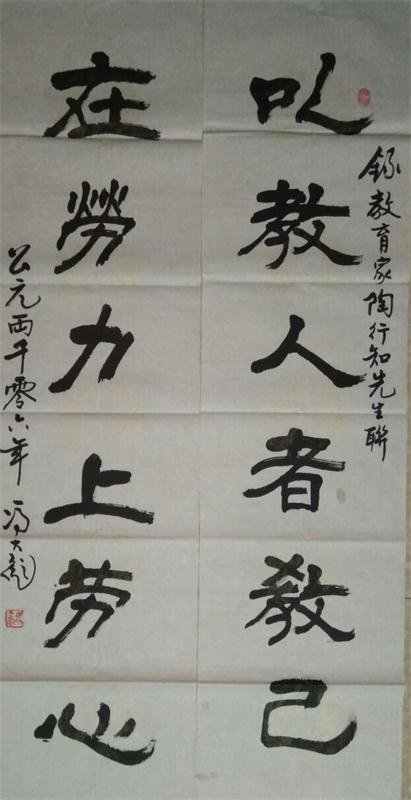 錄教育家陶行知先生聯
以教人者教己
在勞力上劳心
公元両千零六年 冯大彪